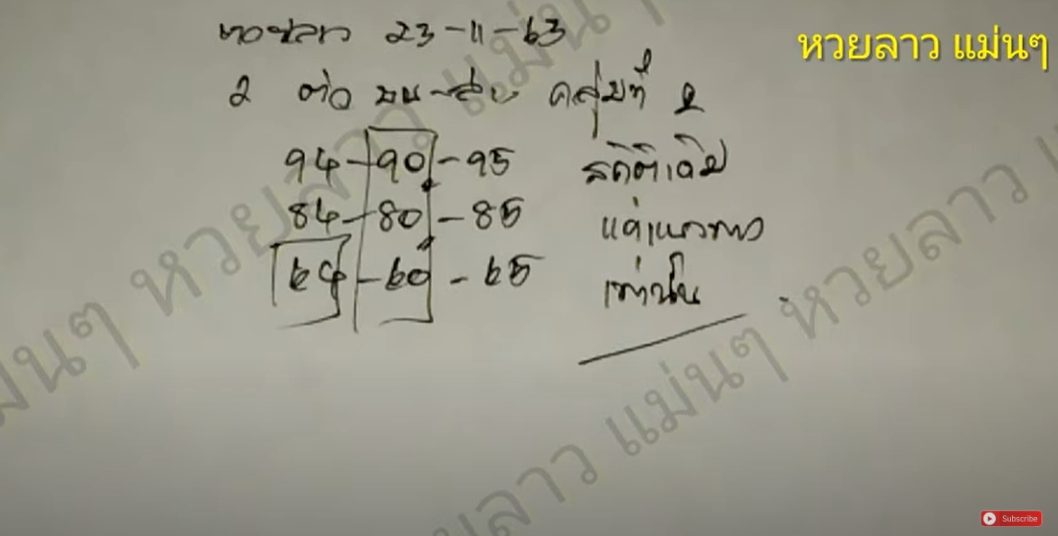 หวยลาว 23-11-63
หวยลาว แม่นๆ
2 ตัว บน-ล่าง
94-90-95
84-80-85
64-60-65
แค่แนวทาง
เท่านั้น
หวยลาว แม่นๆ
หวยลาว แม่นๆ
Subscribe